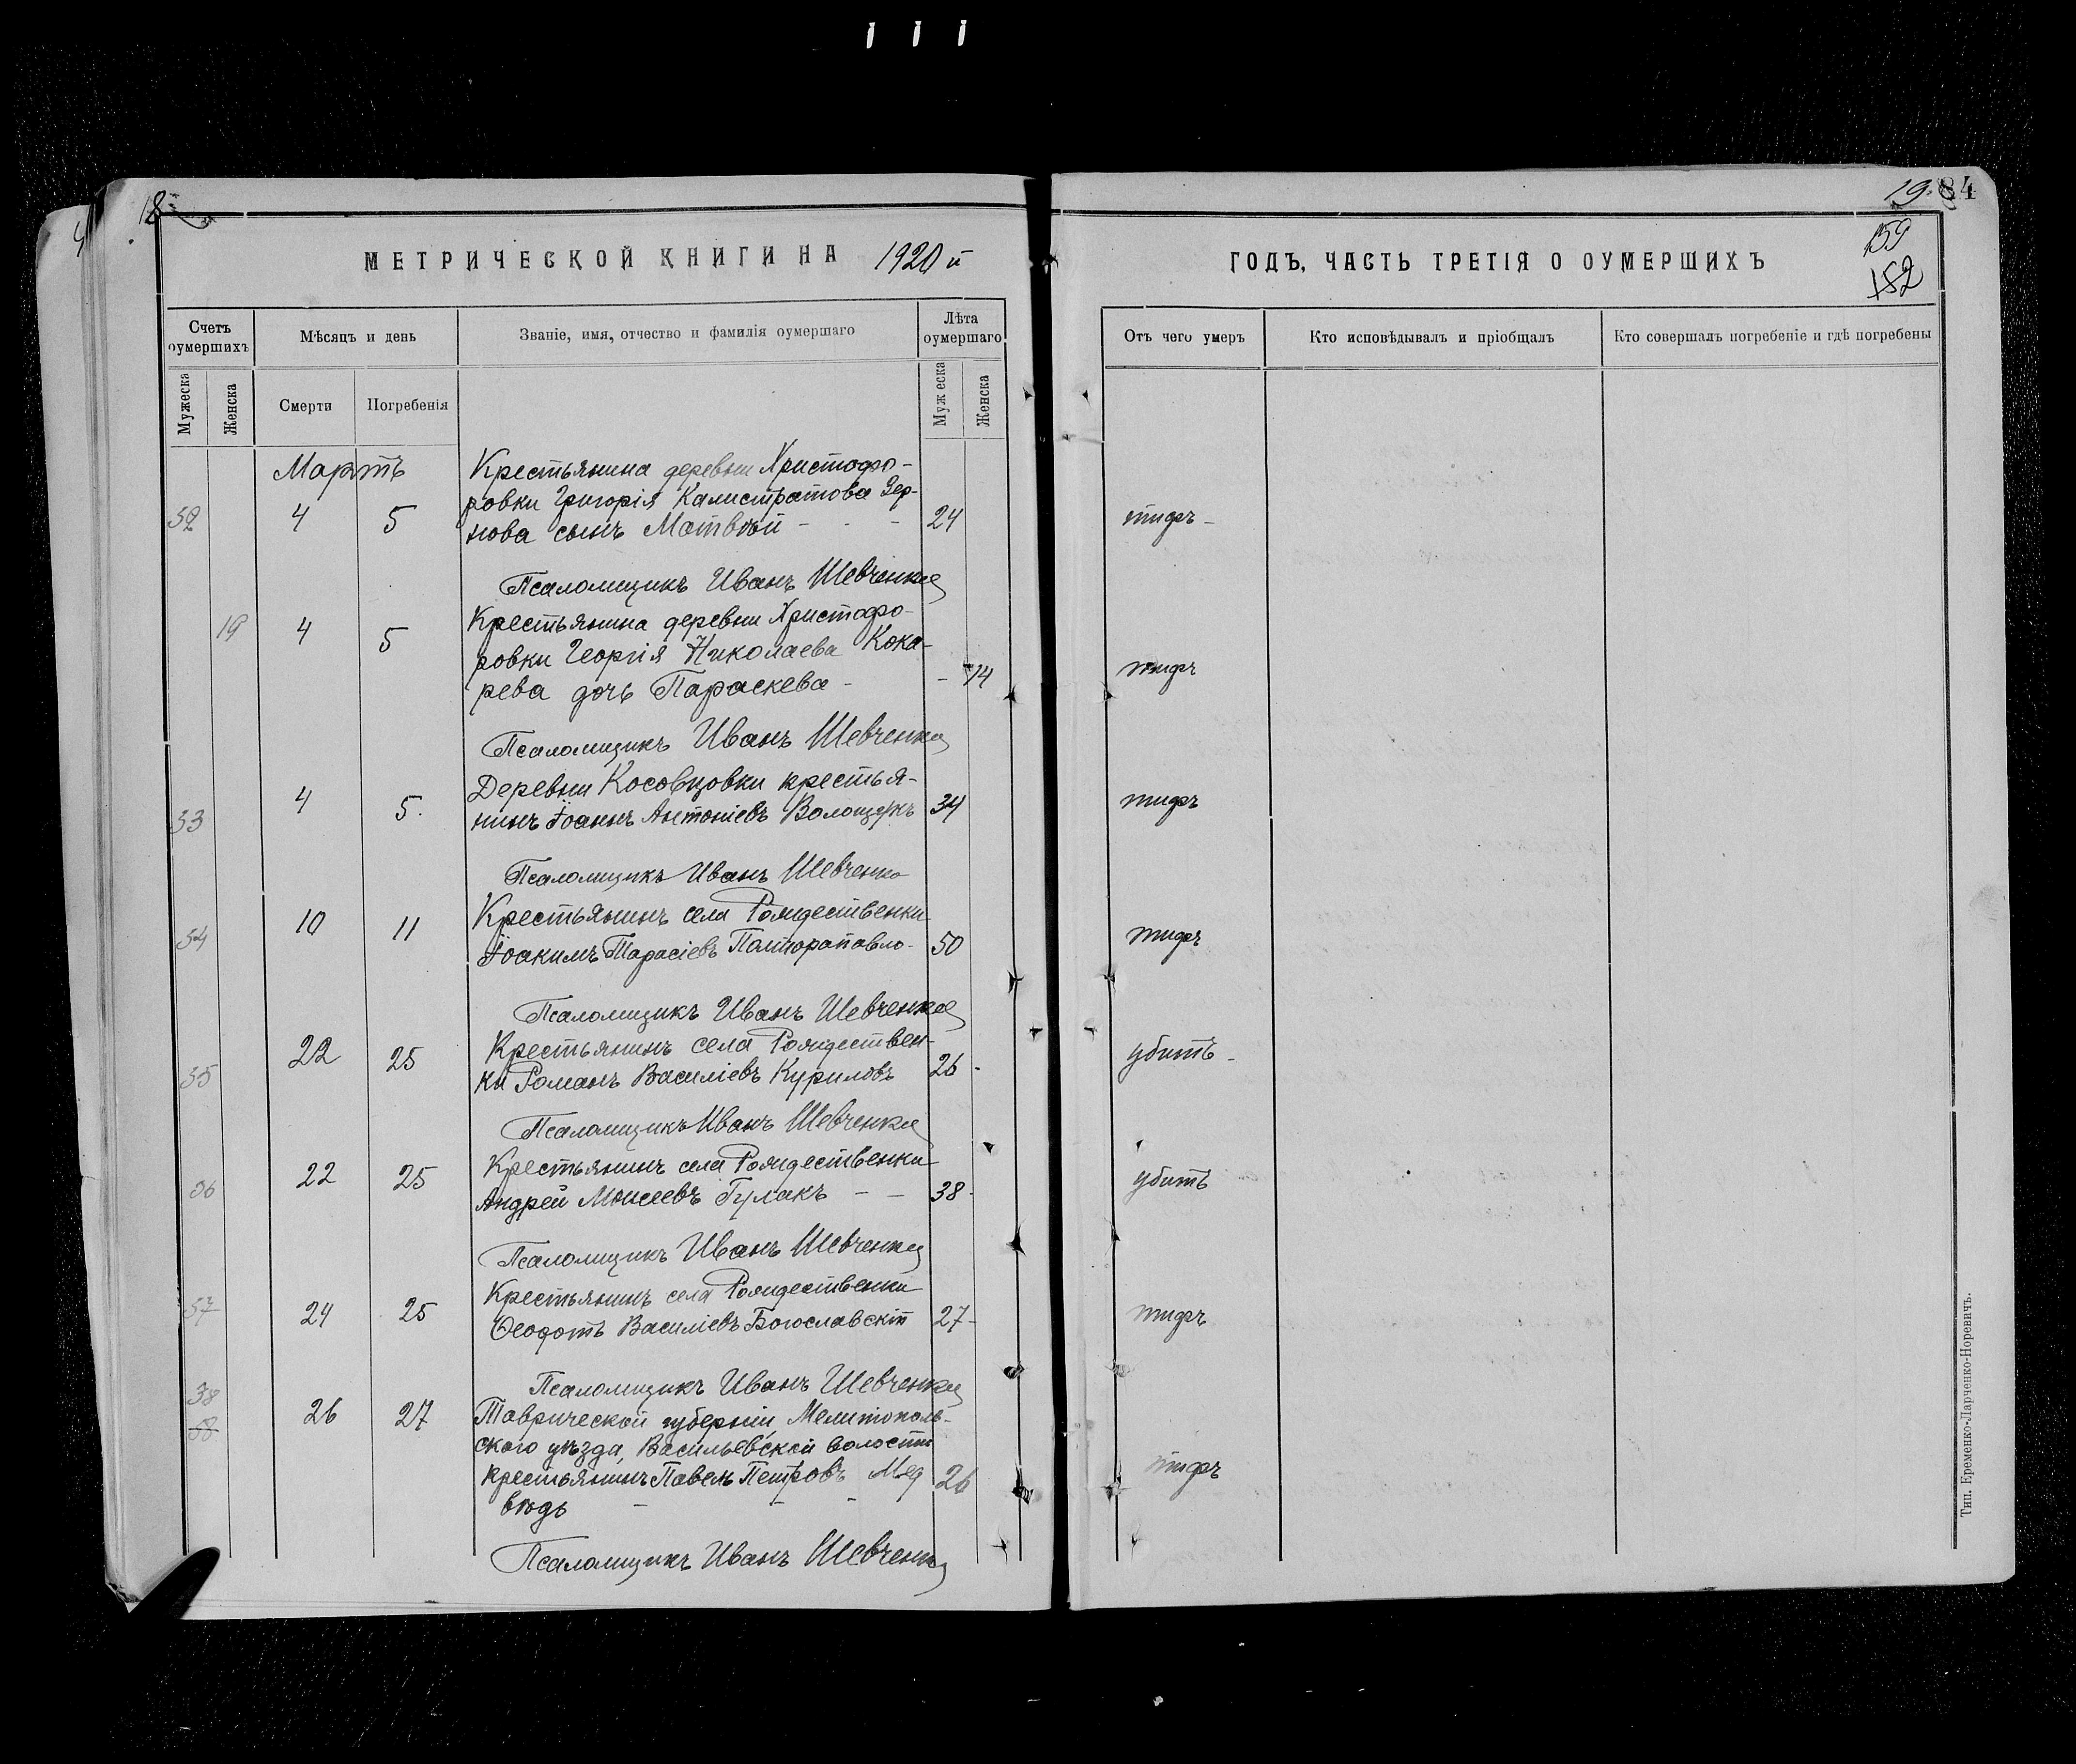 18
МЕТРИЧЕСКОЙ КНИГИ НА 1920 й
Счетъ оумершихъ
Мѣсяцъ и день
Званіе, имя, отчество и фамилія оумершаго
Лѣта оумершаго
Мужеска
Женска
Смерти
Погребенія
Муж еска
Женска
Мартъ
Крестьянина деревни Христофо-
ровки Григорія Калистратова Зер-
52 4 5 нова сынъ Матвѣй - - - 24
Псаломщикъ Иванъ Шевченко
19 4 5 Крестьянина деревни Христофо-
ровки Георгія Николаева Кока-
рева дочь Параскева - - 14
Псаломщикъ Иванъ Шевченко
4 5. Деревни Косовцовки крестья-
53 нинъ Іоаннъ Антоніевъ Волощукъ 34
Псаломщикъ Иванъ Шевченко
10 11 Крестьянинъ села Рождественки
54 Іоакимъ Тарасіевъ Полторапавло- 50
Псаломщикъ Иванъ Шевченко
22 25 Крестьянинъ села Рождествен-
35 ки Романъ Василіевъ Куриловъ 26 -
Псаломщикъ Иванъ Шевченко
22 25 Крестьянинъ села Рождественки
36 Андрей Моисеевъ Гулакъ - - 38 -
Псаломщикъ Иванъ Шевченко
37 24 25 Крестьянинъ села Рождественки
Ѳеодотъ Василіевъ Богославскій 27 -
Псаломщикъ Иванъ Шевченко
38 26 27 Таврической губерніи, Мелитополь-
58 ского уѣзда, Васильевской волости
крестьянинъ Павелъ Петровъ Мед 26
вѣдь - - -
Псаломщикъ Иванъ Шевченко
19 84
159
152
ГОДЪ, ЧАСТЬ ТРЕТІЯ О ОУМЕРШИХЪ
Отъ чего умеръ
Кто исповѣдывалъ и пріобщалъ
Кто совершалъ погребеніе и гдѣ погребены
тифъ -
тифъ
тифъ
тифъ
убитъ -
убитъ
тифъ
тифъ
Тип. Еременко-Ларченко-Норевичъ.